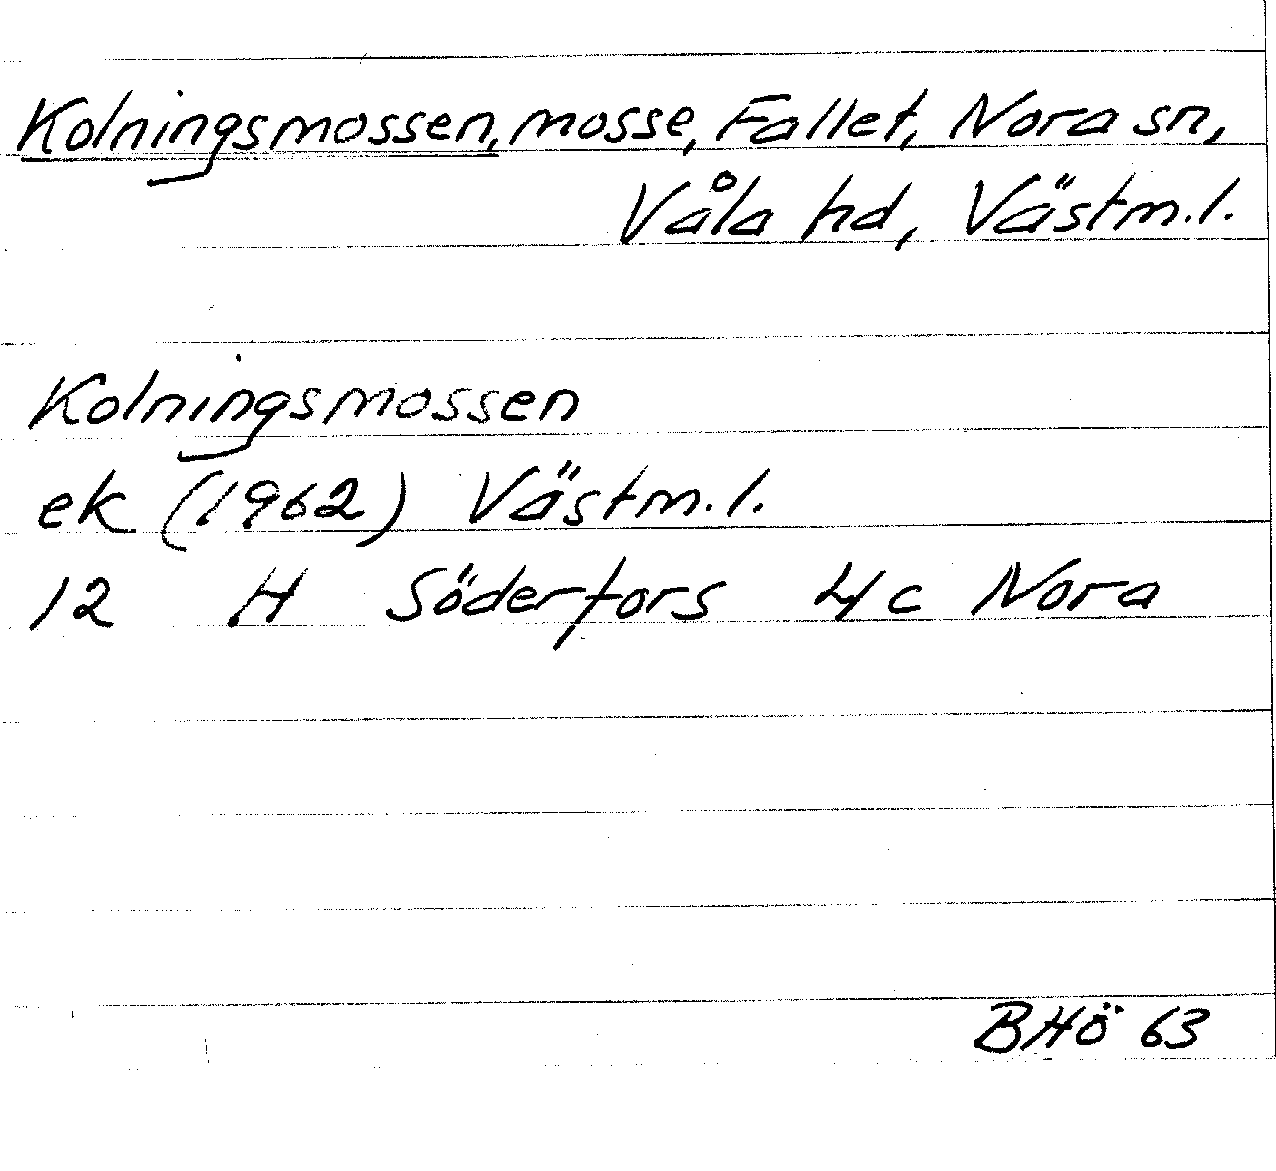 Kolningsmossen, mosse, Fallet, Nora sn,
Våla hd, Västm. l.
Kolningsmossen
ek (1962) Västm. l.
12 H Söderfors 4 c Nora
BHö 63